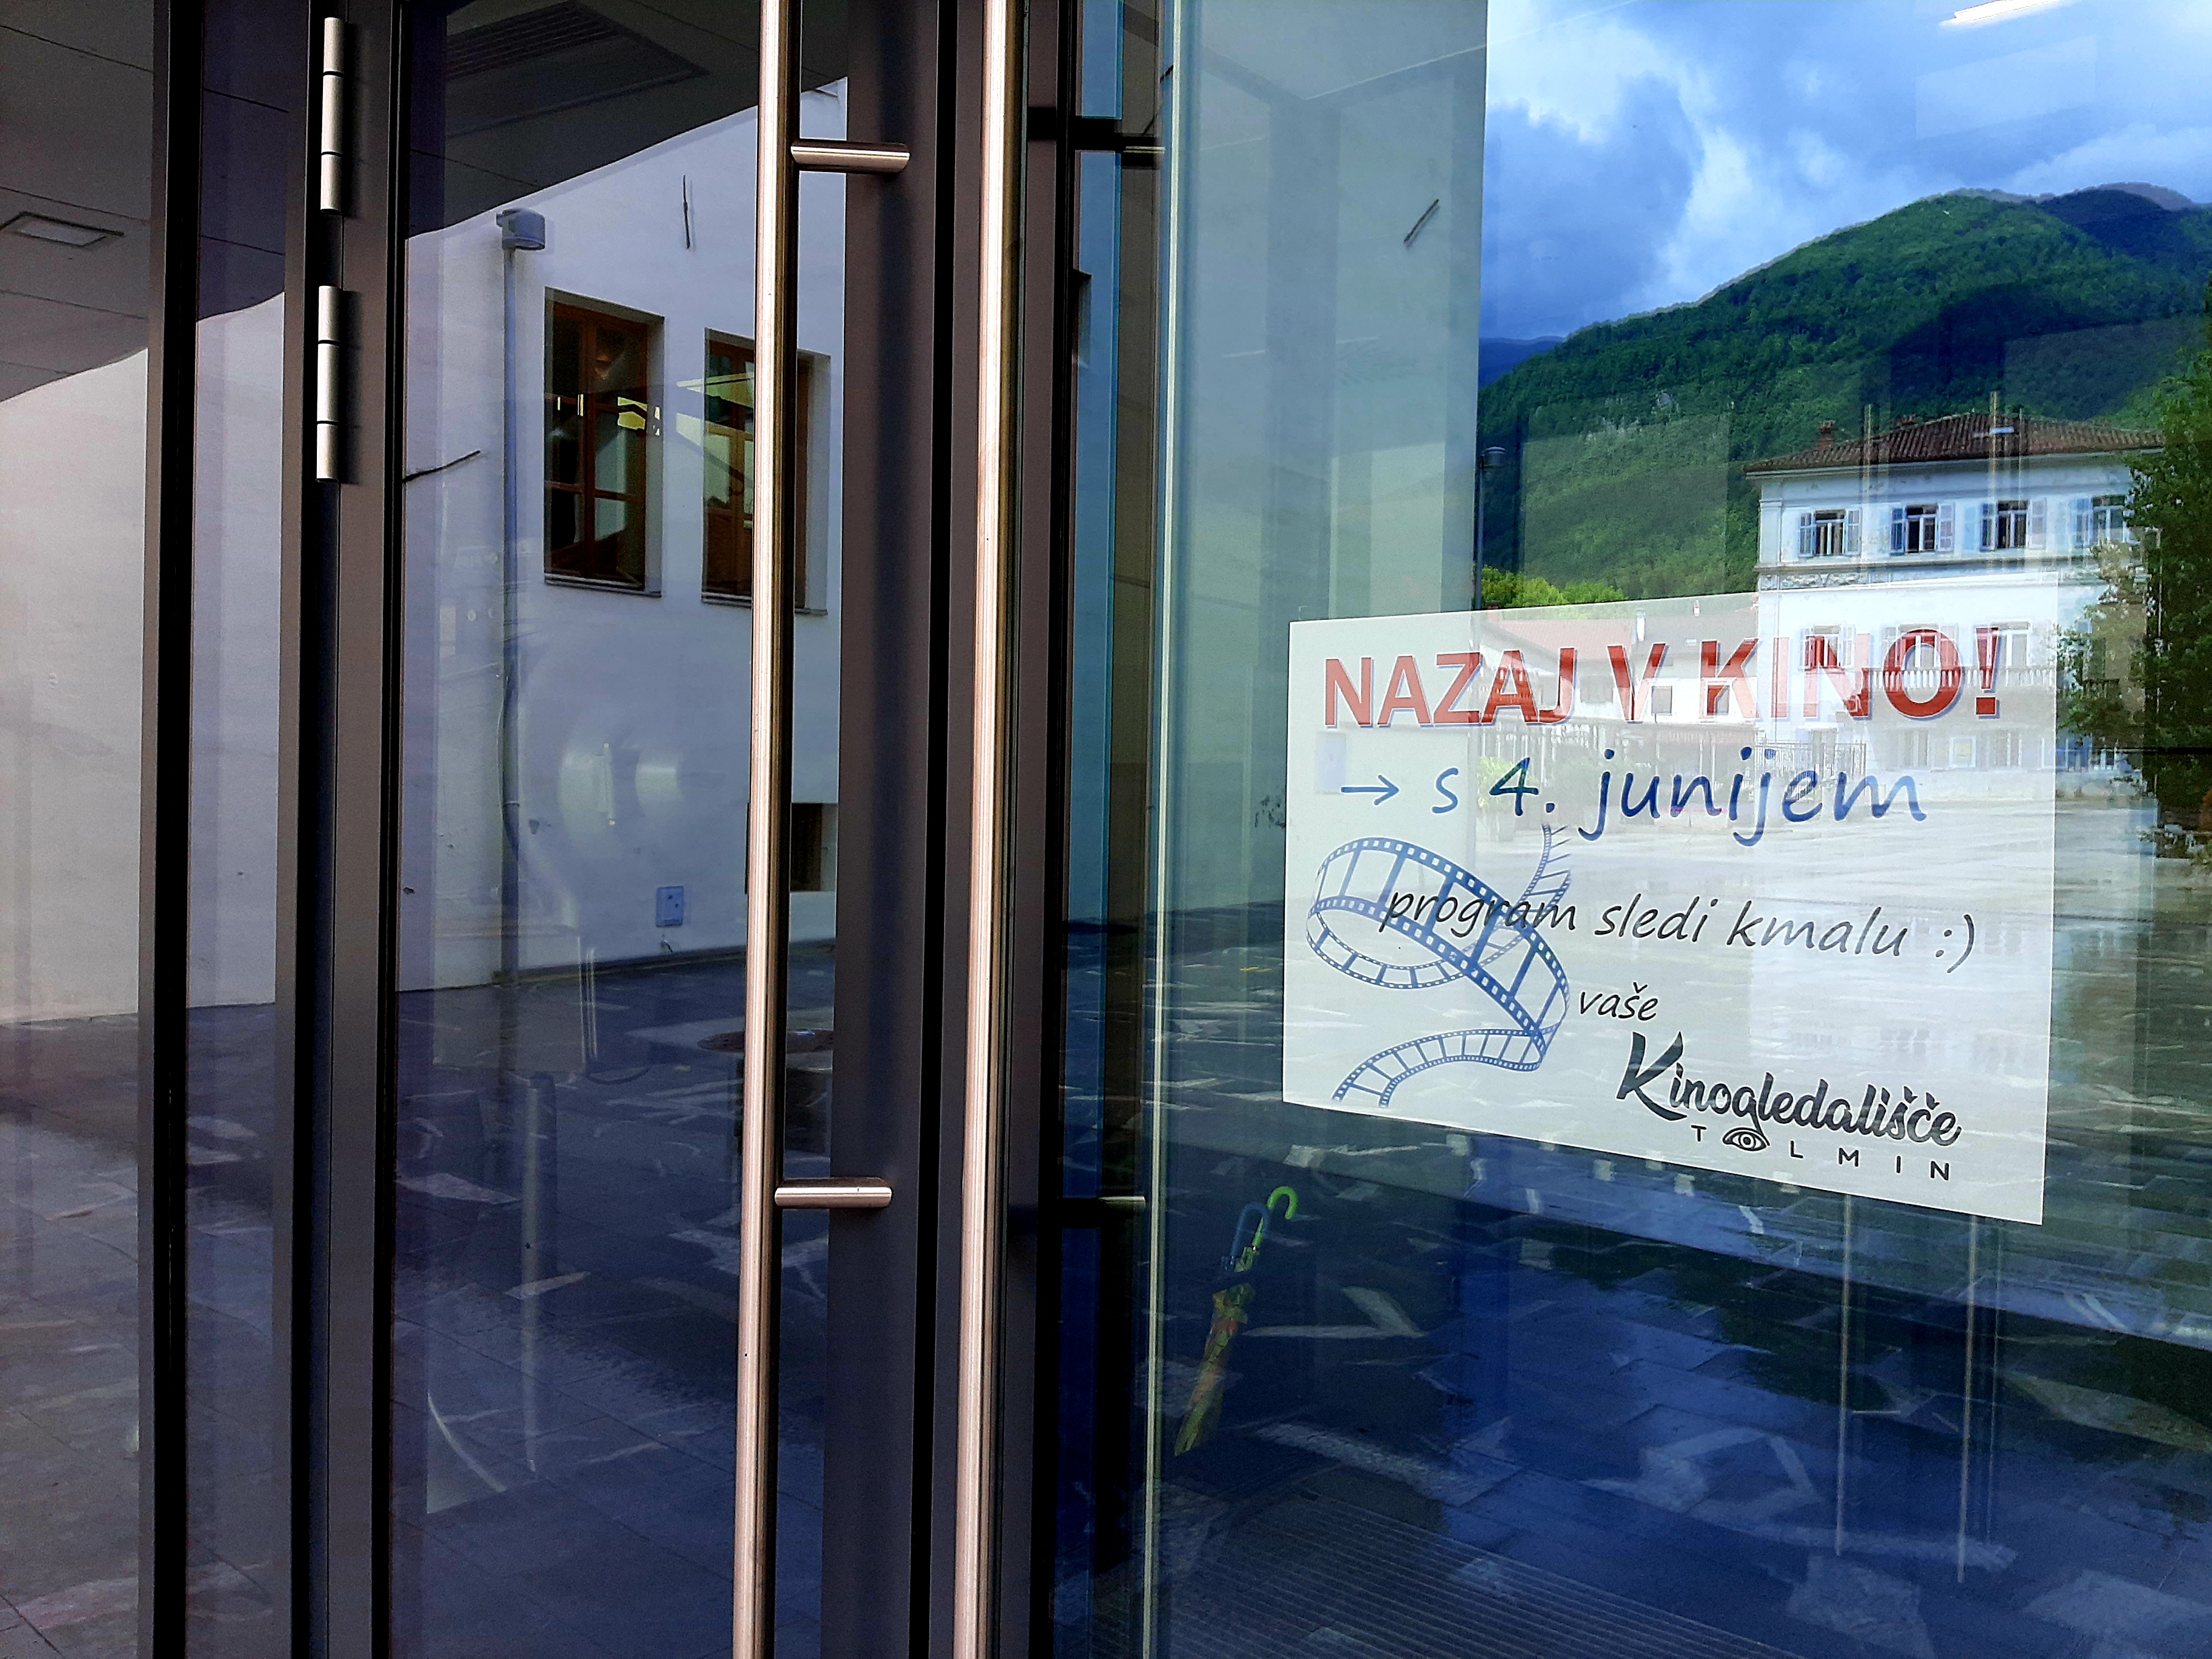 NAZAJ V KINO!
→ s 4. junijem
program sledi kmalu :)
vaše
Kinogledališče
TOLMIN